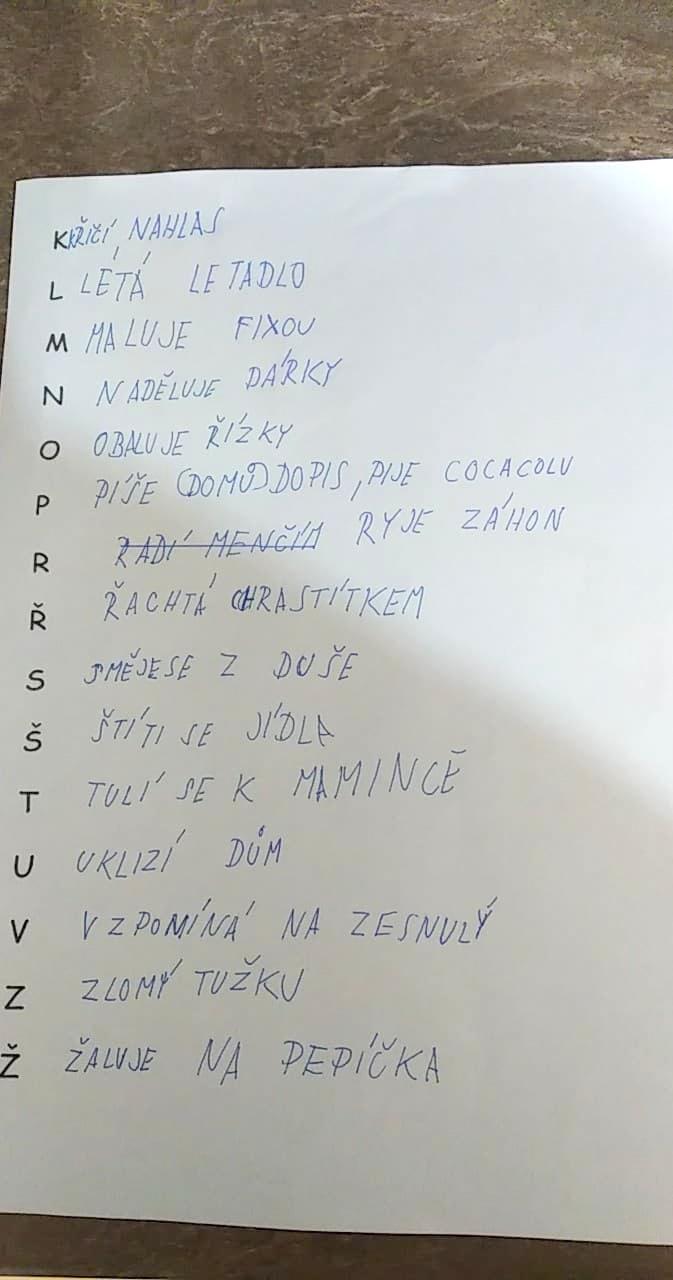 K KŘIČÍ NAHLAS
L LÉTÁ LETADLO
M MALUJE FIXOU
N NADĚLUJE DÁRKY
O OBALUJE ŘÍZKY
P PÍŠE (DOMŮ) DOPIS, PIJE COCACOLU
R RADÍ MENČÍM RYJE ZÁHON
Ř ŘACHTÁ CHRASTÍTKEM
S SMĚJESE Z DUŠE
Š ŠTÍTI SE JÍDLA
T TULÍ SE K MAMINCĚ
U UKLIZÍ DŮM
V VZPOMÍNÁ NA ZESNULÝ
Z ZLOMÝ TUŽKU
Ž ŽALUJE NA PEPÍČKA